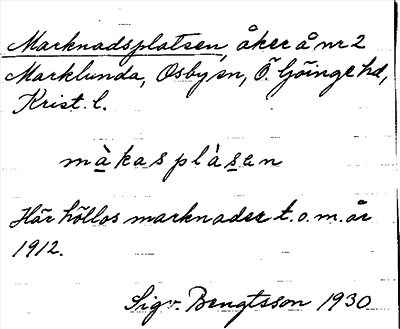 Marknadsplatsen, åker å nr 2
Marklunda, Osby sn, Ö. Göinge hd,
Krist. l.
màkasplàsen
Här höllos marknader t. o. m. år
1912.
Sigv. Bengtsson 1930